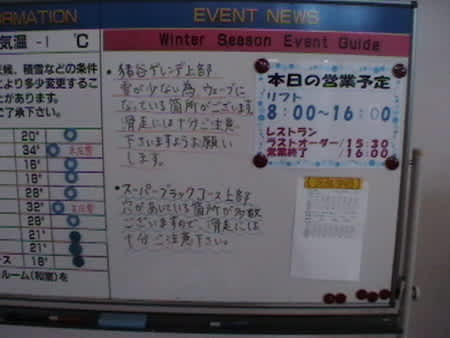 ORMATION
気温 -1 ℃
候、積雪などの条件
により多少変更するこ
とがあります。
ご了承下さい。
20°
34°
18°
18°
28°
32°
28°
21°
21°
18°
ルーム(和室)を
EVENT NEWS
Winter Season Event Guide
・猪谷ゲレンデ上部
雪が少ない為、ウェーブに
なっている箇所がございます。
滑走には十分ご注意
下さいますようお願い
します。
・スーパーブラックコース上部
穴があいている箇所が多数
ございますので、滑走には
十分ご注意下さい。
本日の営業予定
リフト
8:00~16:00
レストラン
ラストオーダー/15:30
営業終了/16:00